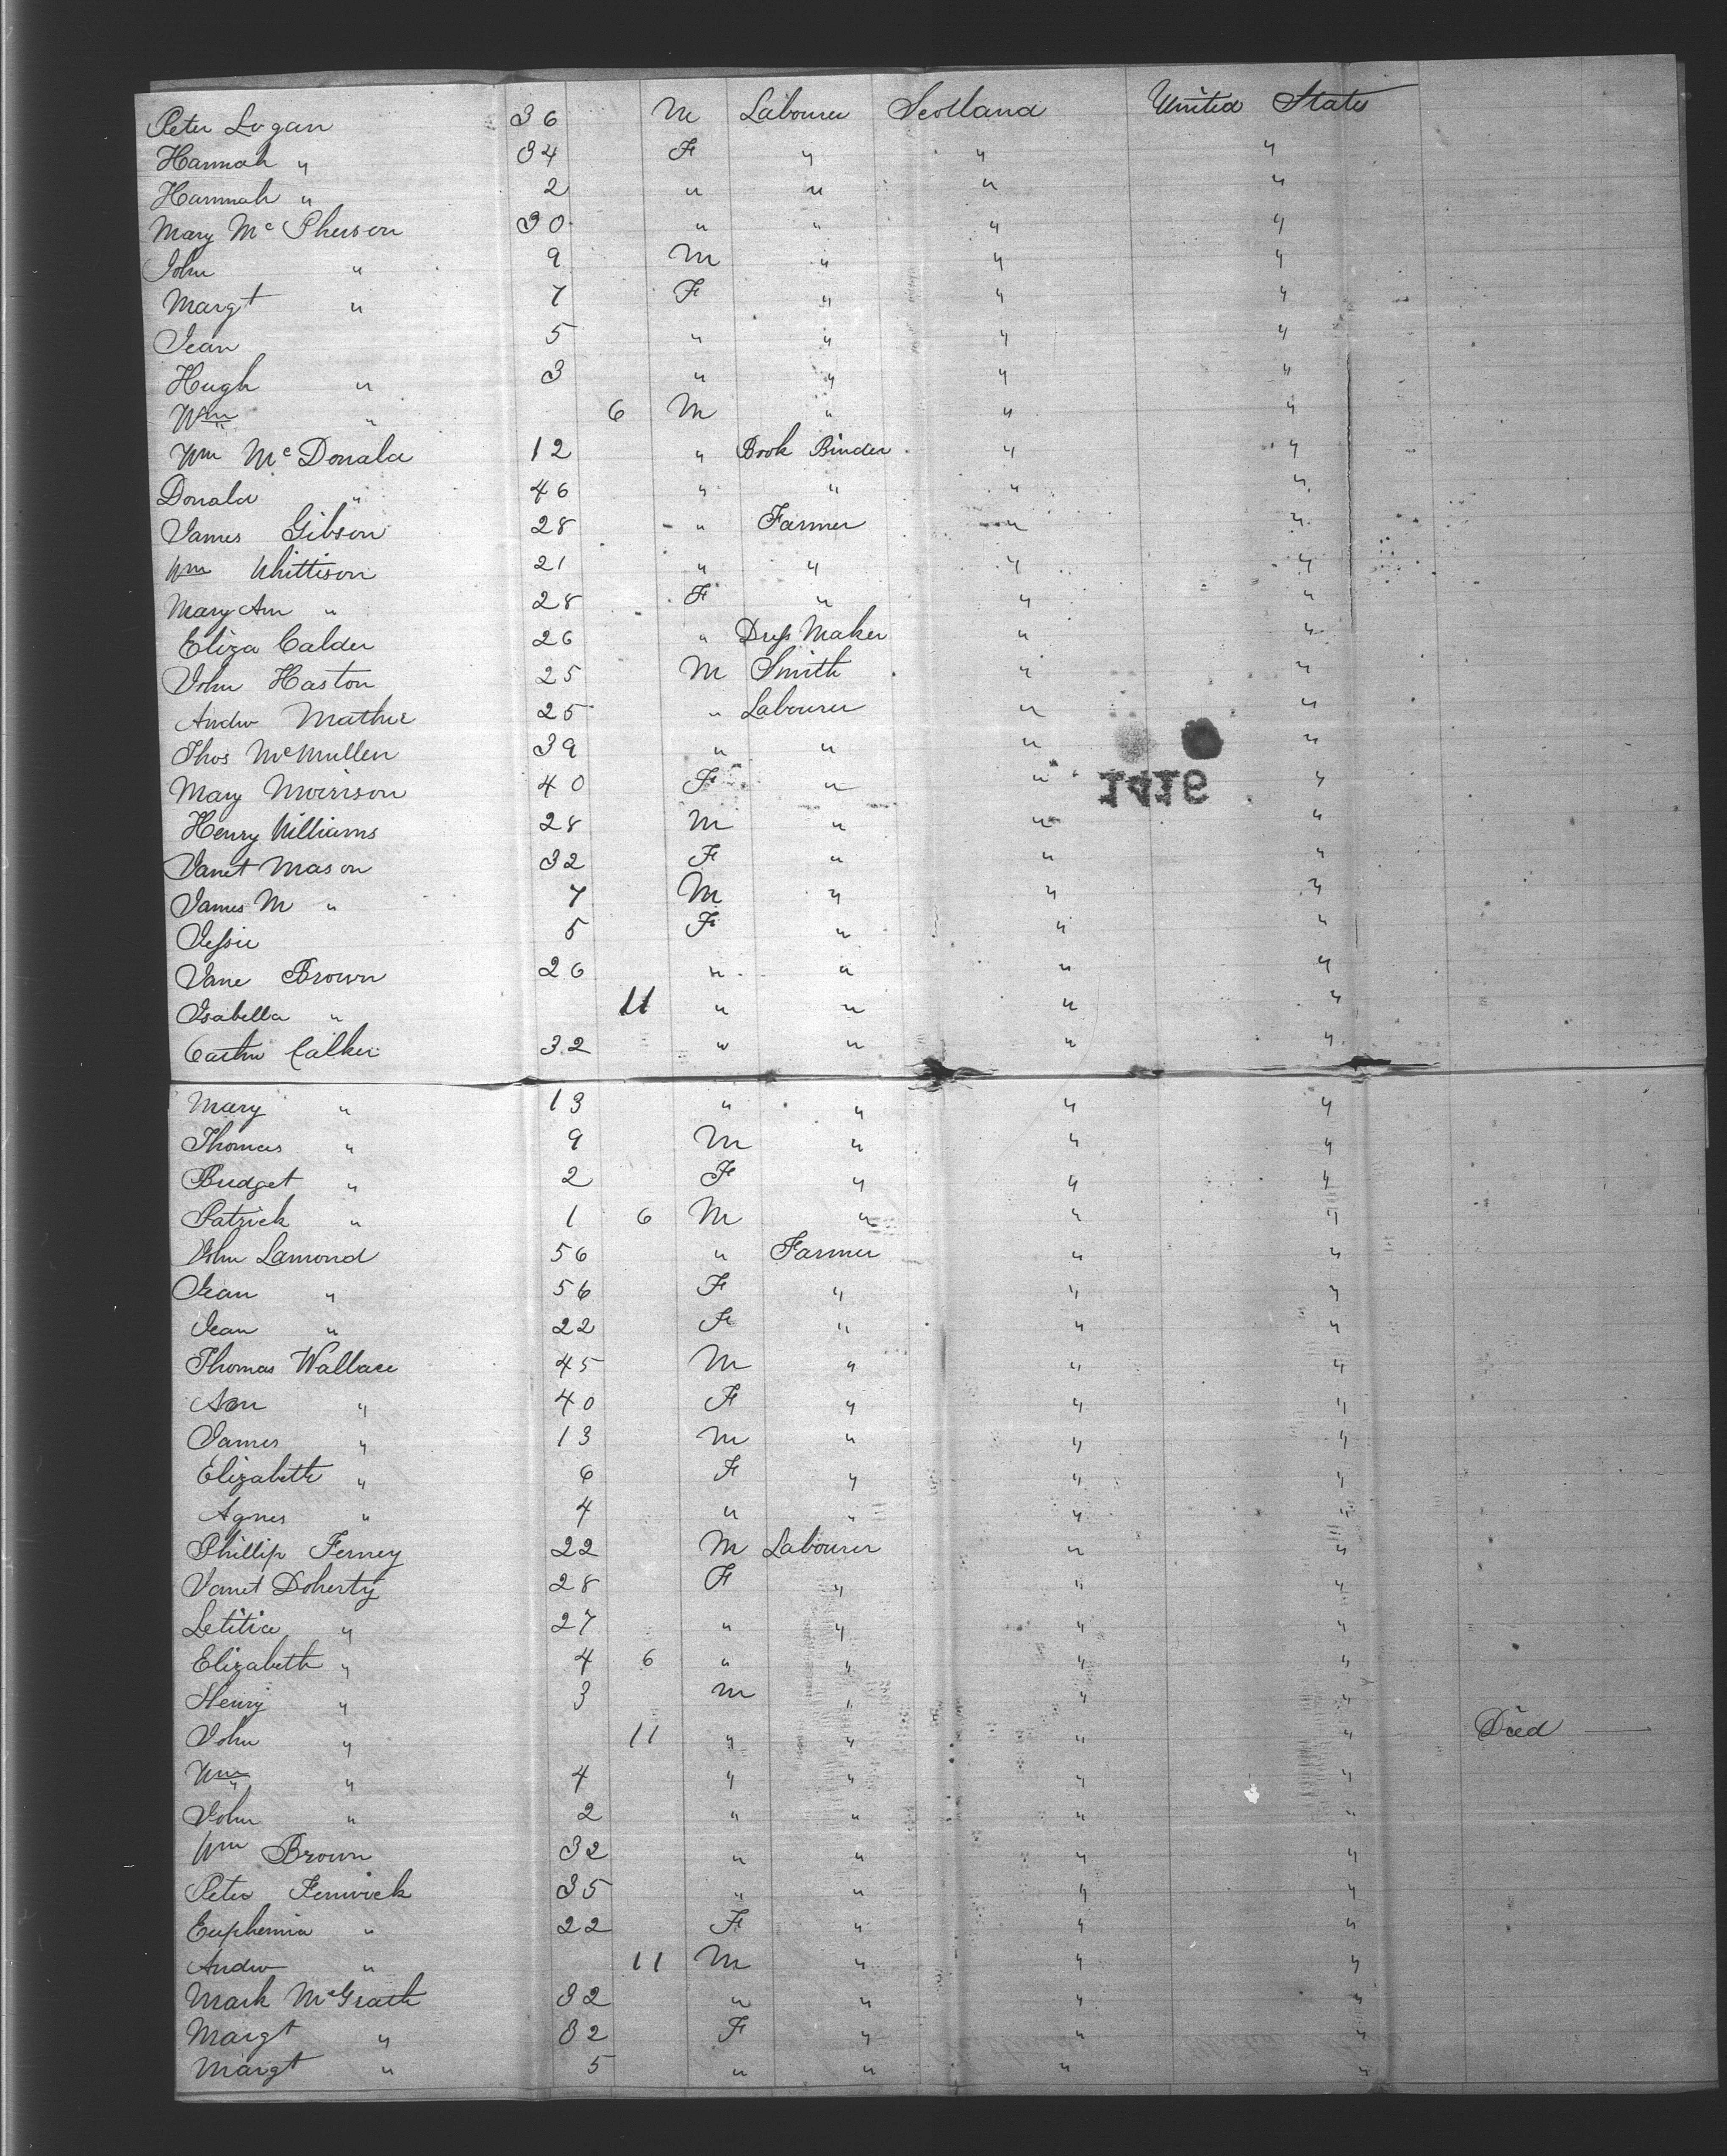 Peter Logan 36 M Labourer Scotland United States
Hannah " 34 F " " "
Hannah " 2 " " " "
Mary McPherson 30 " " " "
John " 9 M " " "
Margt " 7 F " " "
Jean 5 " " " "
Hugh " 3 " " " "
Wm " 6 M " " "
Wm McDonald 12 " Book Binder " "
Donald " 46 " " " "
James Gibson 28 " Farmer " "
Wm Whittison 21 " " " "
Mary Ann " 28 F " " "
Eliza Calder 26 " Dress Maker " "
John Haston 25 M Smith " "
Andw Mathie 25 " Labourer " "
Thos McMullen 39 " " " "
Mary Morrison 40 F " " "
1416
Henry Williams 28 M " " "
Janet Mason 32 F " " "
James M " 7 M " " "
Jessie 5 F " " "
Jane Brown 26 " " " "
Isabella " 11 " " " "
32 " " " "
Mary " 13 " " " "
Thomas " 9 M " " "
Bridget " 2 F " " "
Patrick " 1 6 M " " "
John Lamond 56 " Farmer " "
Jean " 56 F " " "
Jean " 22 F " " "
Thomas Wallace 45 M " " "
Ann " 40 F " " "
James " 13 M " " "
Elizabeth " 6 F " " "
Agnes " 4 " " " "
Phillip Ferney 22 M Labourer " "
Janet Doherty 28 F " " "
Letitia " 27 " " " "
Elizabeth " 4 6 " " " "
Henry " 3 M " " "
John " 11 " " " " Died
Wm " 4 " " " "
John " 2 " " " "
Wm Brown 32 " " " "
Peter Fenwick 35 " " " "
Euphemia " 22 F " " "
Andw " 11 M " " "
Mark McGrath 32 " " " "
Margt " 32 F " " "
Margt " 5 " " " "